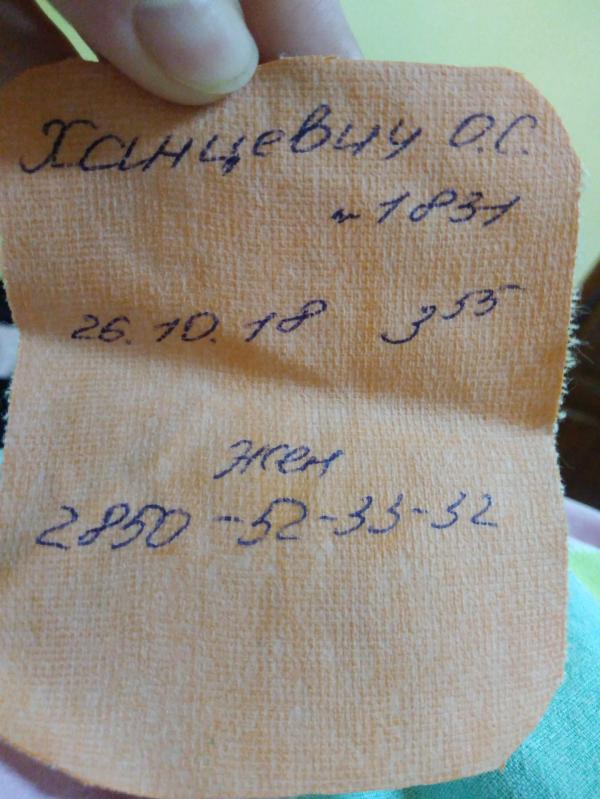 Ханцевич О.С.
~ 1831
26.10.18 3⁵⁵
жен
2850-52-33-32